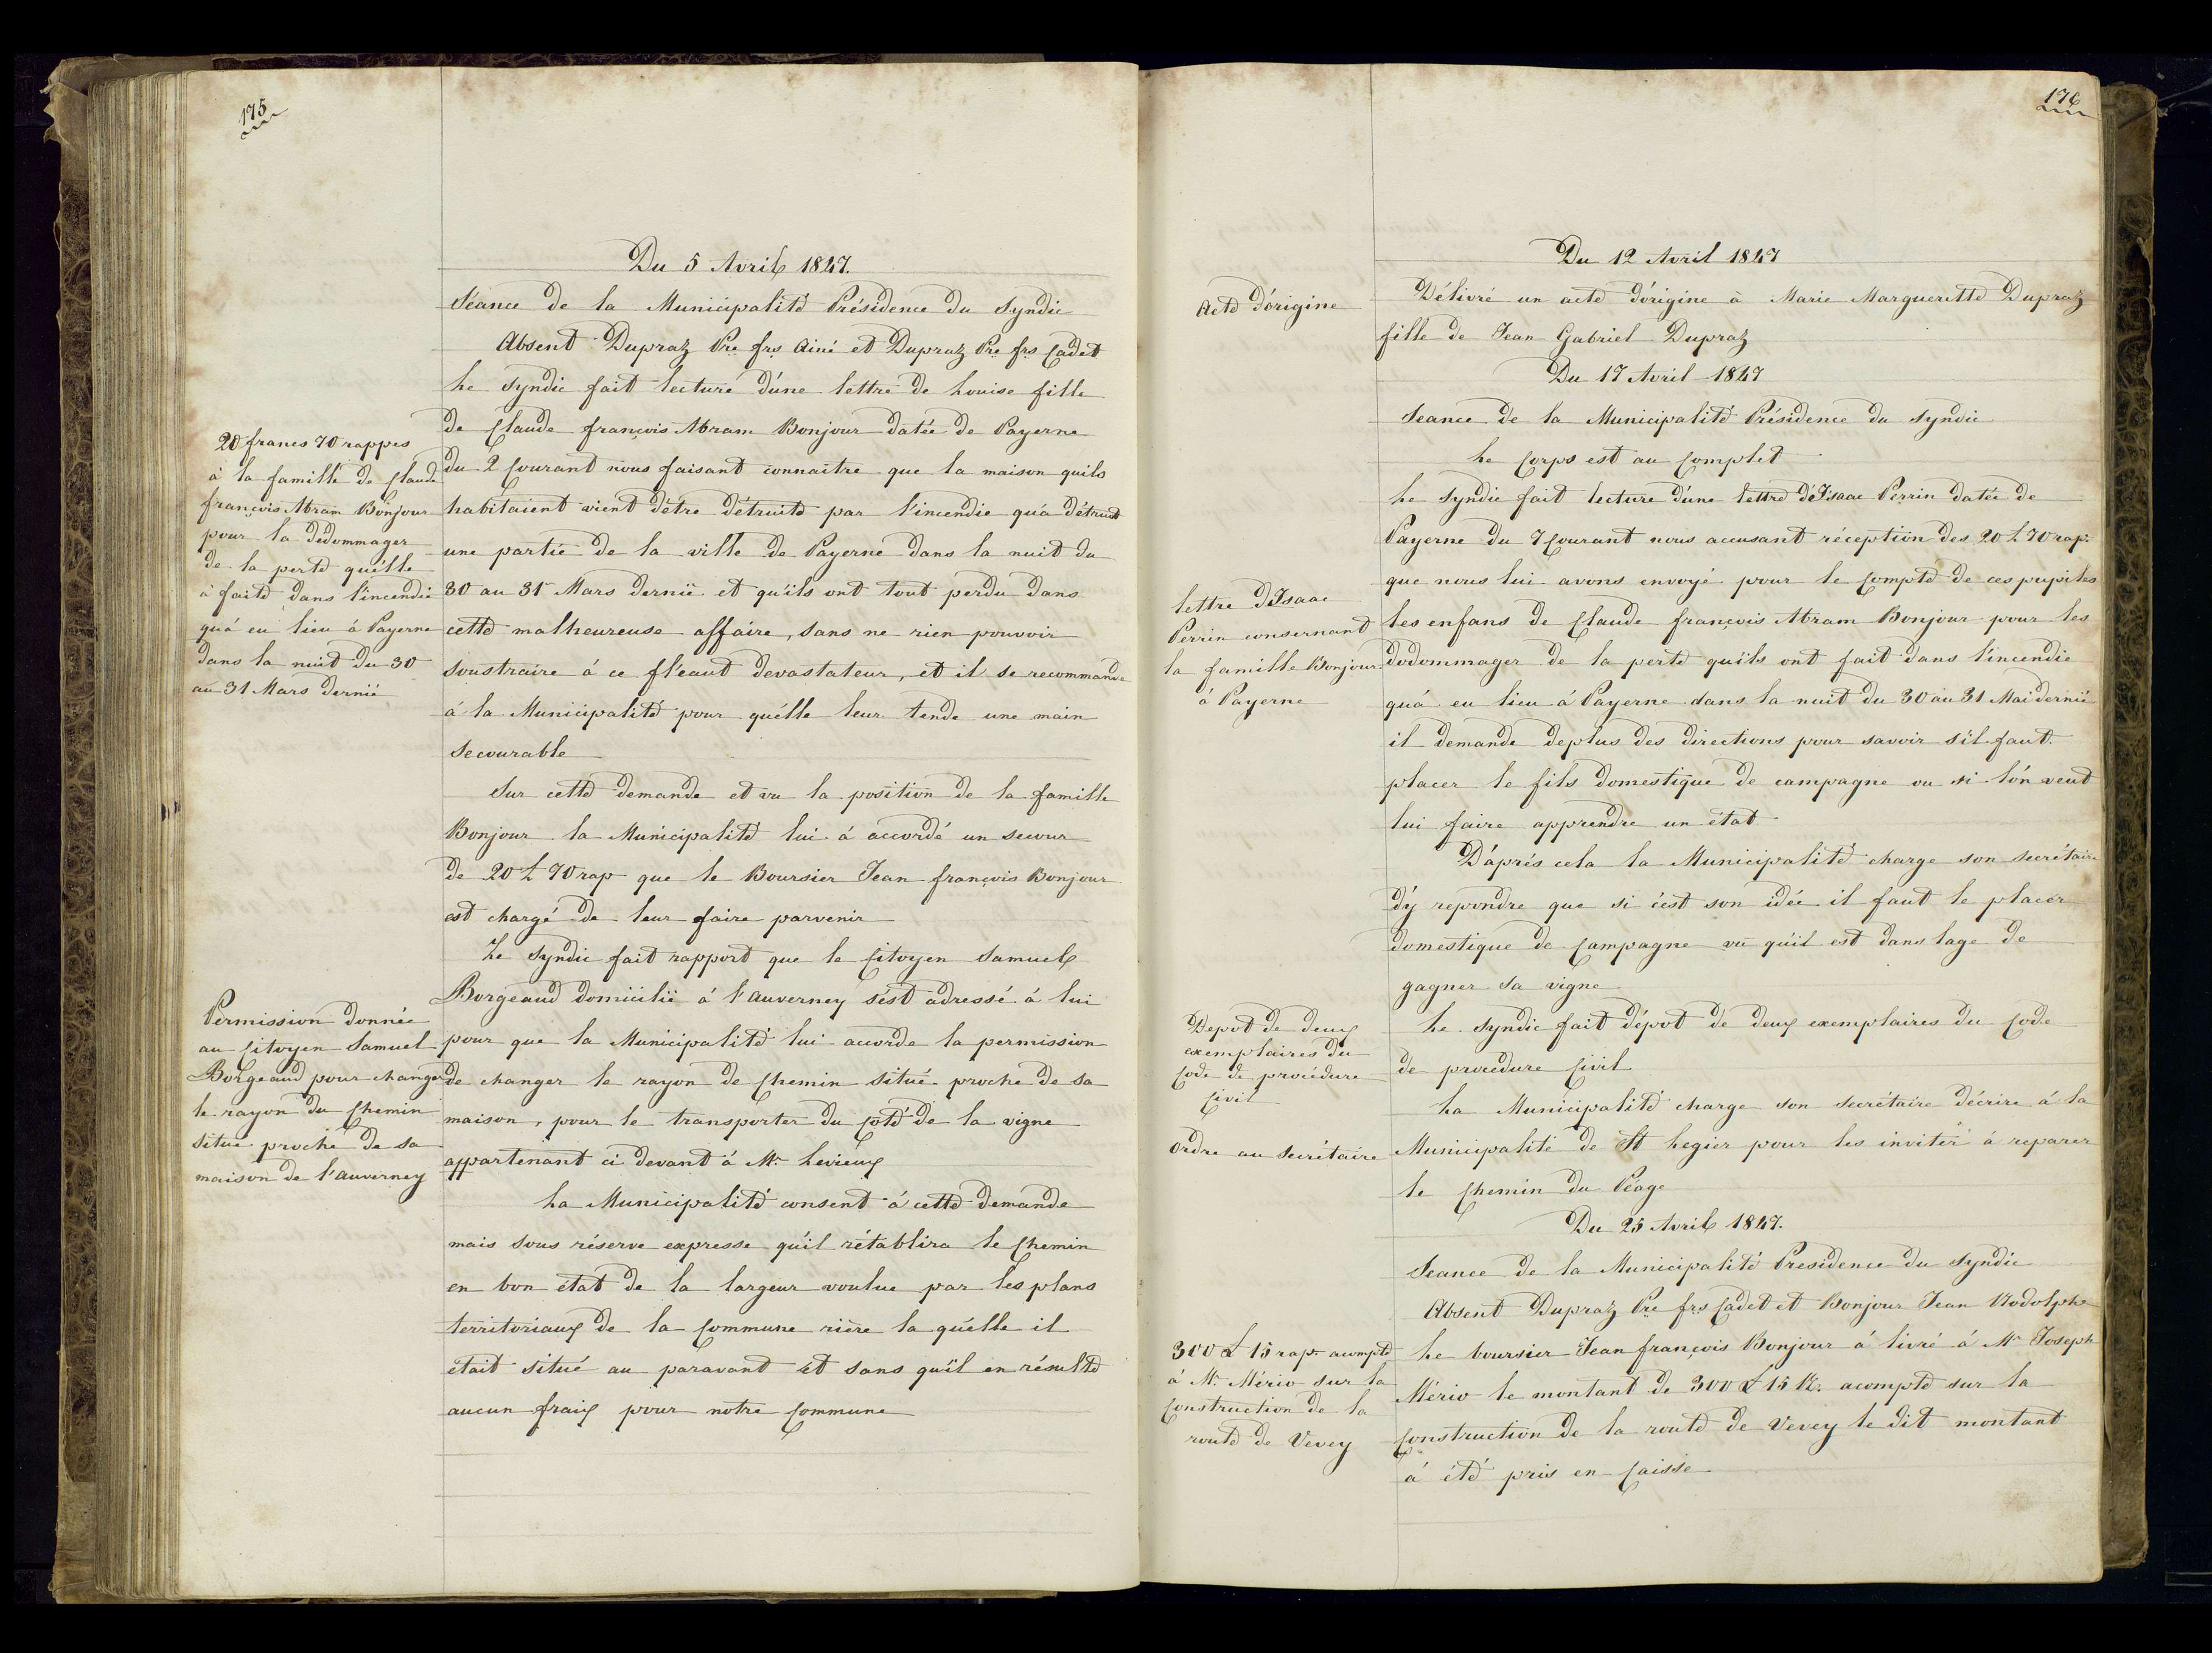 175
Du 5 Avril 1847.
Séance de la Municipalité Présidence du Syndic
Absent Dupraz Pre frs Ainé et Dupraz Pre frs Cadet
Le Syndic fait lecture d'une lettre de Louise fille
de Claude françois Abram Bonjour datée de Payerne
du 2 Courant nous faisant connaitre que la maison quils
habitaient vient d'être détruite par l'incendie qu'a détruit
une partie de la ville de Payerne dans la nuit du
30 au 31 Mars dernié et qu'ils ont tout perdu dans
cette malheureuse affaire, sans ne rien pouvoir
soustraire à ce fléaut devastateur, et il se recommande
à la Municipalité pour qu'elle leur tende une main
Secourable
Sur cette demande et vu la position de la famille
Bonjour la Municipalité lui à accordé un secour
de 20 £ 70 rap que le Boursier Jean françois Bonjour
est chargé de leur faire parvenir
Le Syndic fait rapport que le Citoyen Samuel
Borgeaud domicilié à l'Auverney s'est adressé à lui
pour que la Municipalité lui accorde la permission
de changer le rayon de Chemin situé proche de sa
maison, pour le transporter du Coté de la vigne
appartenant ci devant à Mr Levieux
La Municipalité consent à cette demande
mais sous réserve expresse qu'il rétablira le Chemin
en bon état de la largeur voulue par les plans
territoriaux de la Commune rière la qu'elle il
était situé au paravant et sans qu'il en résulte
aucun fraix pour notre Commune
20 francs 70 rappes
à la famille de Claude
françois Abram Bonjour
pour la dedommager
de la perte qu'elle
à faite dans l'incendie
qu'à eu lieu à Payerne
dans la nuit du 30
au 31 Mars dernié
Permission donnée
au Citoyen Samuel
Borgeaud pour changer
le rayon du Chemin
situé proche de sa
maison de l'Auverney
176
Du 12 Avril 1847
Acte d'origine
Délivré un acte d'origine à Marie Marguerite Dupraz
fille de Jean Gabriel Dupraz
Du 17 Avril 1847
Seance de la Municipalité Présidence du Syndic
Le Corps est au Complet
Le Syndic fait lecture d'une lettre d'Isaac Perrin datée de
Payerne du 7 Courant nous accusant réception des 20 £ 70 rap.
que nous lui avons envoyé pour le Compte de ces pupiles
les enfans de Claude françois Abram Bonjour pour les
dodommager de la perte qu'ils ont fait dans l'incendie
qu'à eu lieu à Payerne dans la nuit du 30 au 31 Mai dernié
il demande deplus des directions pour savoir s'il faut
placer le fils domestique de campagne ou si l'on veut
lui faire apprendre un état
D'après cela la Municipalité charge son secrétaire
d'y repondre que si c'est son idée il faut le placer
domestique de Campagne vu qu'il est dans lage de
gagner sa vigne
Le Syndic fait dépot de deux exemplaires du Code
de procedure Civil
La Municipalité charge son secrétaire décrire à la
Municipalité de St Legier pour les inviter à reparer
le Chemin du Péage
Du 25 Avril 1847.
Seance de la Municipalité Presidence du Syndic
Absent Dupraz Pre frs Cadet et Bonjour Jean Rodolphe
Le boursier Jean françois Bonjour à livré à Mr Joseph
Mério le montant de 300 £ 15 R. acompte sur la
Construction de la route de Vevey le dit montant
à été pris en Caisse
lettre d'Isaac
Perrin consernant
la famille Bonjour
à Payerne
Depot de deux
exemplaires du
Code de procédure
Civil
Ordre au Secrétaire
300 £ 15 rap. acompte
à Mr Mério sur la
Construction de la
route de Vevey